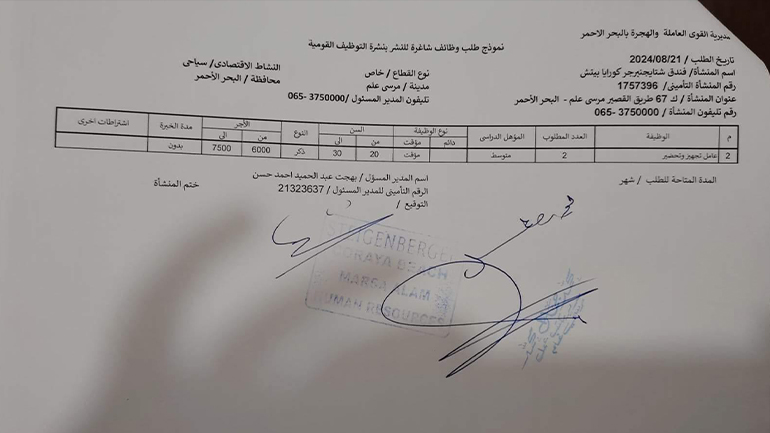 مديرية القوى العاملة والهجرة بالبحر الاحمر
نموذج طلب وظائف شاغرة للنشر بنشرة التوظيف القومية
تاريخ الطلب / 2024/08/21
اسم المنشأة/ فندق شتايجنبرجر كورايا بيتش
رقم المنشأة التأمينى/ 1757396
عنوان المنشأة / ك 67 طريق القصير مرسى علم - البحر الأحمر
رقم تليفون المنشأة / 3750000 -065
نوع القطاع / خاص
مدينة / مرسى علم
تليفون المدير المسئول /3750000 -065
النشاط الاقتصادى/ سياحى
محافظة / البحر الأحمر
م الوظيفة العدد المطلوب المؤهل الدراسى نوع الوظيفة السن النوع الأجر مدة الخبرة اشتراطات اخرى
دائم مؤقت من الى من الى
2 عامل تجهيز وتحضير 2 متوسط مؤقت 20 30 ذكر 6000 7500 بدون
المدة المتاحة للطلب / شهر
اسم المدير المسؤل / بهجت عبد الحميد احمد حسن
الرقم التأمينى للمدير المسئول / 21323637
التوقيع / ( )
ختم المنشأة
STEIGENBERGER
CORAYA BEACH
MARSA ALAM
HUMAN RESOURCES